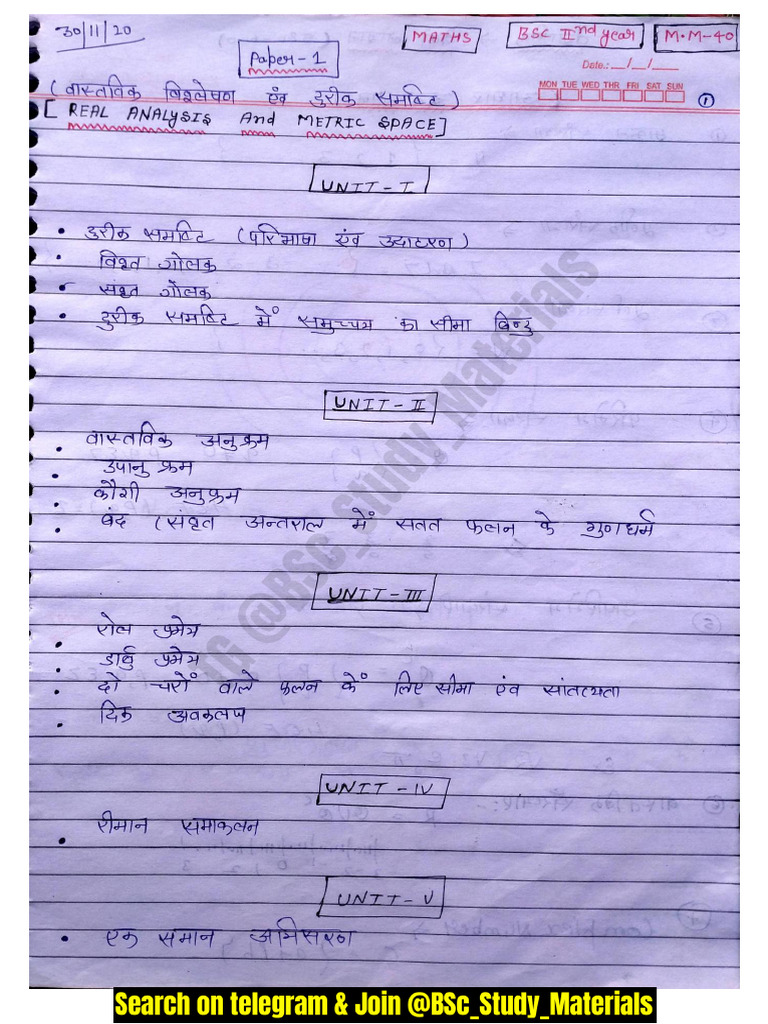 30/11/20
MATHS
BSC IInd year
M.M-40
Paper-1
Date.: __/__/__
MON TUE WED THR FRI SAT SUN
(वास्तविक विश्लेषण एंव दुरीक समष्टि)
①
[REAL ANALYSIS And METRIC SPACE]
UNIT-I
• दुरीक समष्टि (परिभाषा एंव उदाहरण)
• विवृत गोलक
• संवृत गोलक
• दुरीक समष्टि में समुच्चय का सीमा बिन्दु
UNIT-II
• वास्तविक अनुक्रम
• उपानुक्रम
• कौशी अनुक्रम
• बंद (संवृत अन्तराल में सतत फलन के गुणधर्म
UNIT-III
• रोल प्रमेय
• डार्बु प्रमेय
• दो चरों वाले फलन कें लिए सीमा एंव सांतत्यता
• दिक अवकलज
UNIT-IV
• रीमान समाकलन
UNIT-V
• एक समान अभिसरण
IG @BSc_Study_Materials
Search on telegram & Join @BSc_Study_Materials